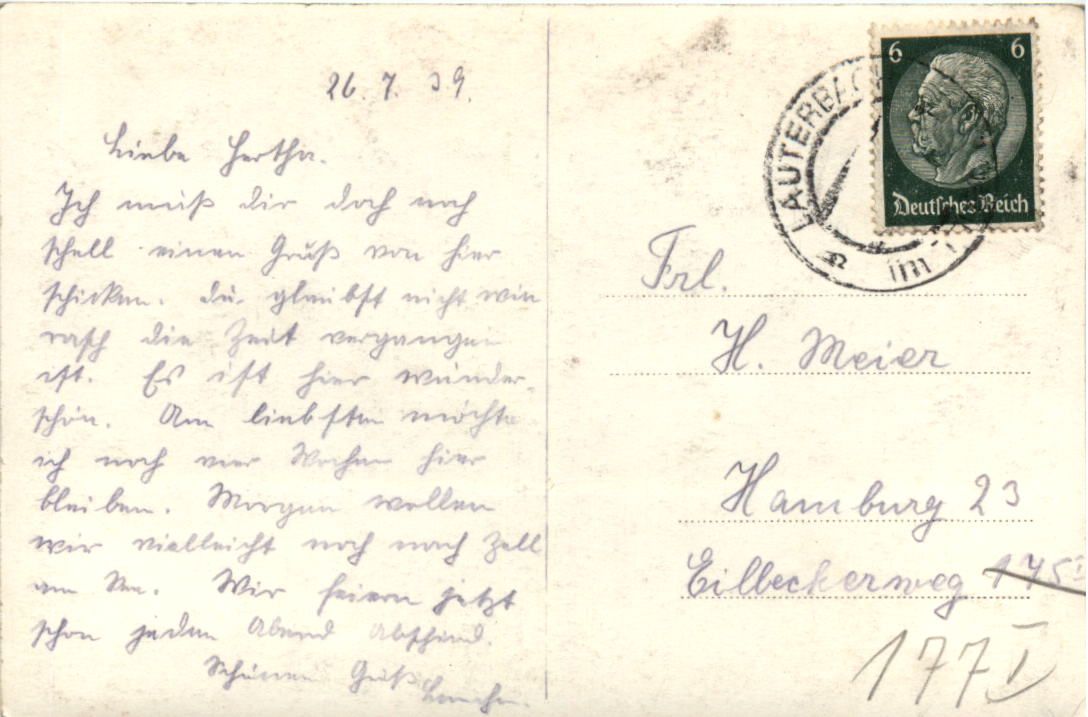 26. 7. 39.
Liebe Hertha.
Ich muß dir doch noch
schell einen Gruß von hier
schicken. Du glaubst nicht wie
rasch die Zeit vergangen
ist. Es ist hier wunder-
schön. Am liebsten möchte
ich noch vier Wochen hier
bleiben. Morgen wollen
wir vielleicht noch nach Zell
am See. Wir feiern jetzt
schon jeden Abend Abschied.
Schönen Gruß
6 6
Deutsches Reich
LAUTERBACH
im
Frl.
H. Meier
Hamburg 23
Eilbeckerweg 175 I
177 I